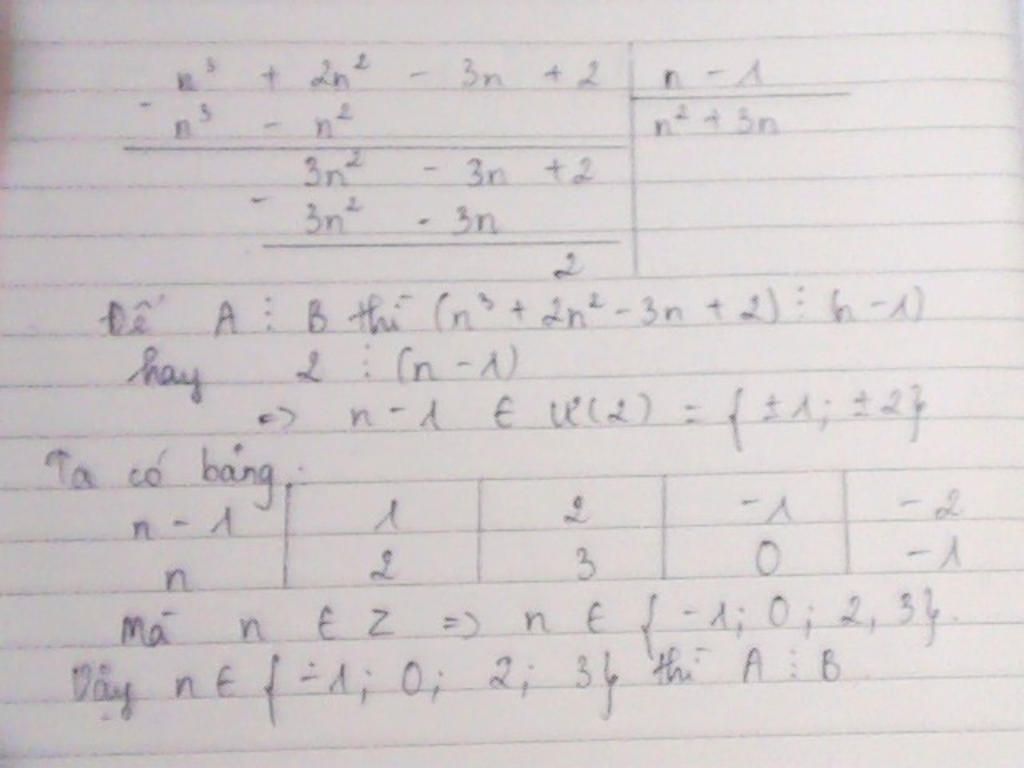 n³ + 2n² - 3n + 2 | n - 1
- n³ - n² | n² + 3n
3n² - 3n + 2
- 3n² - 3n
2
Để A ⋮ B thì (n³ + 2n² - 3n + 2) ⋮ (n - 1)
hay 2 ⋮ (n - 1)
=> n - 1 ∈ Ư(2) = { ±1; ±2}
Ta có bảng:
n - 1 | 1 | 2 | -1 | -2
n | 2 | 3 | 0 | -1
Mà n ∈ Z => n ∈ { -1; 0; 2, 3}.
Vậy n ∈ { -1; 0; 2; 3} thì A ⋮ B